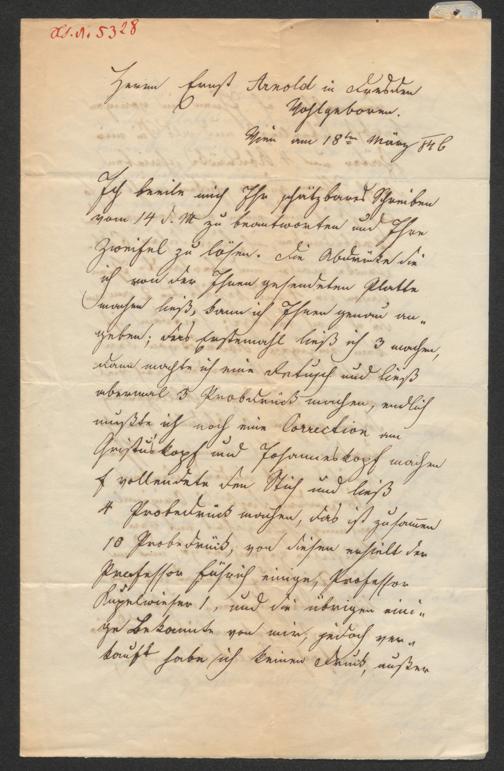 H. I. N. 5328
Herrn Ernst Arnold in Dresden
Wohlgeboren.
Wien am 18ten März 846
Ich beeile mich Ihr schätzbares Schreiben
vom 14 d. M zu beantworten und Ihre
Zweifel zu lösen. Die Abdrücke die
ich von der Ihnen gesendeten Platte
machen ließ, kann ich Ihnen genau an-
geben; das Erstemahl ließ ich 3 machen,
dann machte ich eine Retusch und ließ
abermal 3 Probedruck machen, endlich
mußte ich noch eine Correction am
Christuskopf und Johanneskopf machen
& vollendete den Stich und ließ
4 Probedruck machen, das ist zusamen
10 Probedrück, von diesen erhielt der
Professor Führich einige, Professor
Kupelwieser 1, und die übrigen eini-
ge Bekannte von mir, jedoch ver-
kauft habe ich keinen Druck, außer